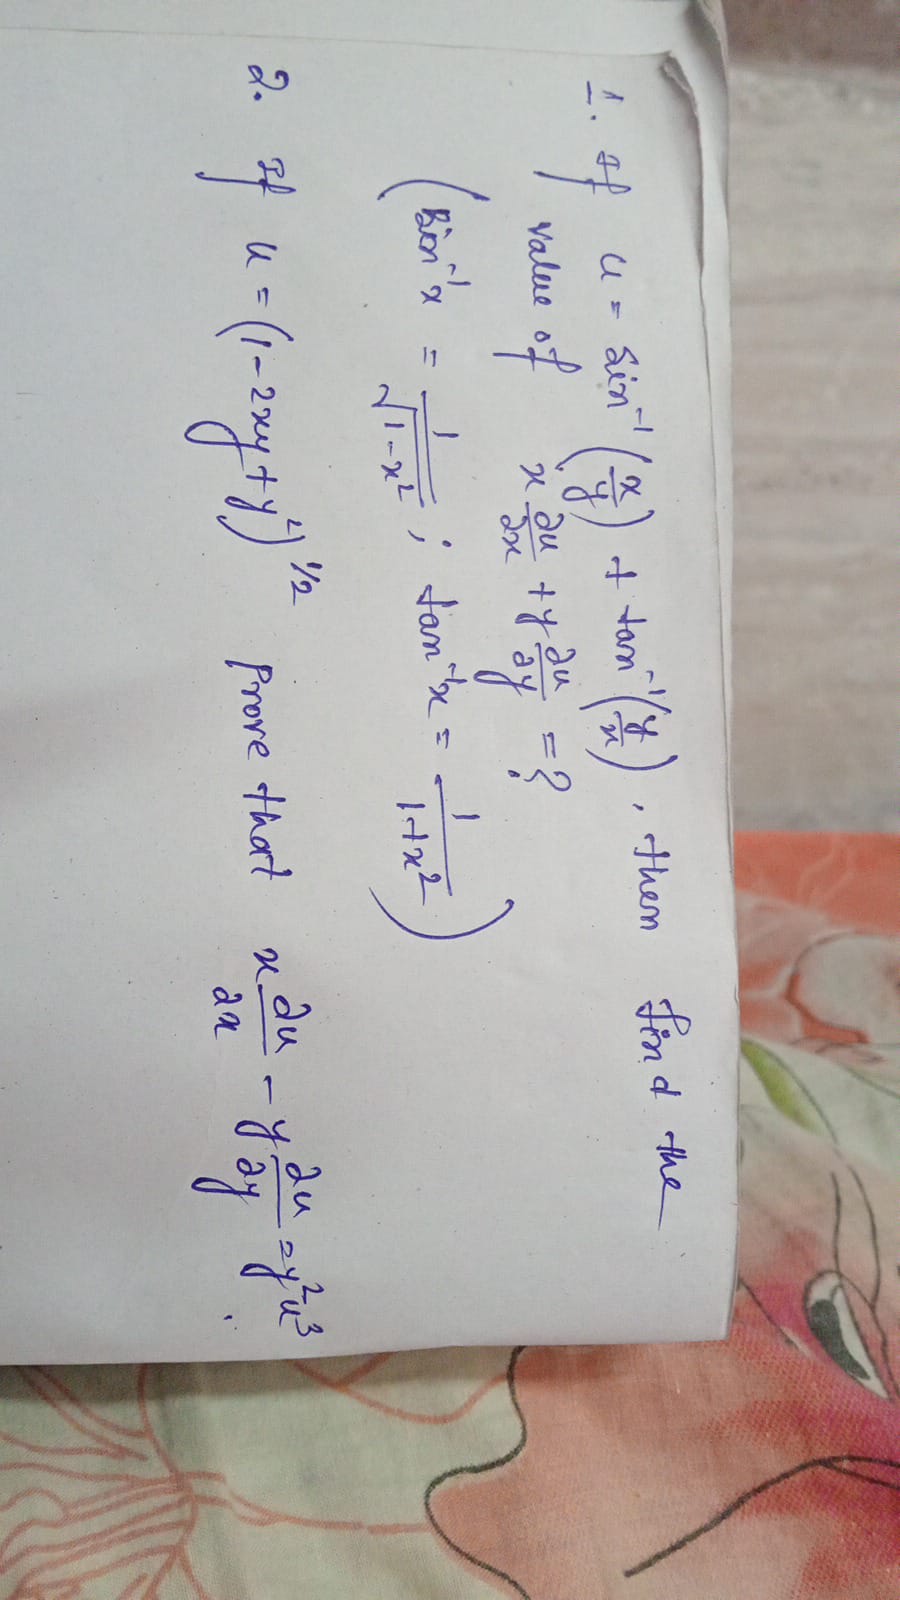 1. If u = sin⁻¹(x/y) + tan⁻¹(y/x), then find the
value of x ∂u/∂x + y ∂u/∂y = ?
(sin⁻¹x = 1/√(1-x²) ; tan⁻¹x = 1/(1+x²))
2. If u = (1-2xy+y²)^1/2 prove that x ∂u/∂x - y ∂u/∂y = y²u³.